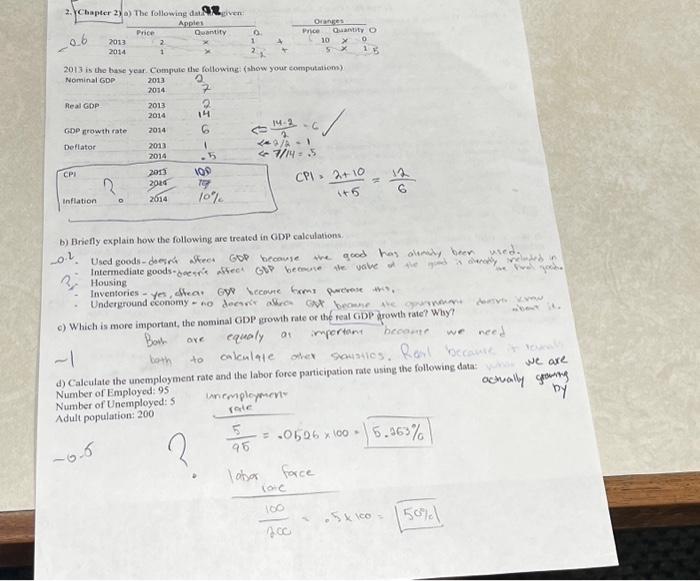 2. (Chapter 2) a) The following data given:
Apples Oranges
Price Quantity Q Price Quantity O
-0.6 2013 2 x 1 + 10 x 0
2014 1 x 2 + 5 x 1 5
2013 is the base year. Compute the following: (show your computations)
Nominal GDP 2013 2
2014 7
Real GDP 2013 2
2014 14
GDP growth rate 2014 6 <= 14-2 / 2 = 6 ✓
Deflator 2013 1 <= 2/2 = 1
2014 .5 <= 7/14 = .5
CPI 2013 100 CPI = 2+10 / 1+5 = 12 / 6
2014
Inflation ? 2014 10%
b) Briefly explain how the following are treated in GDP calculations.
-0.2 - Used goods - doesn't affect GDP because the good has already been used.
- Intermediate goods - doesn't affect GDP because the value of the good is already included in the final goods
? - Housing
- Inventories - yes, affects GDP because firms purchase this.
- Underground economy - no doesn't affect GDP because the government doesn't know about it.
c) Which is more important, the nominal GDP growth rate or the real GDP growth rate? Why?
Both are equaly as important because we need
-1 both to calculate other statistics. Real because it
we are actually growing by
d) Calculate the unemployment rate and the labor force participation rate using the following data:
Number of Employed: 95
Number of Unemployed: 5
Adult population: 200
unemployment rate
5 / 95 = .0526 x 100 = 5.263%
-0.5 ?
labor force rate
100 / 200 = .5 x 100 = 50%